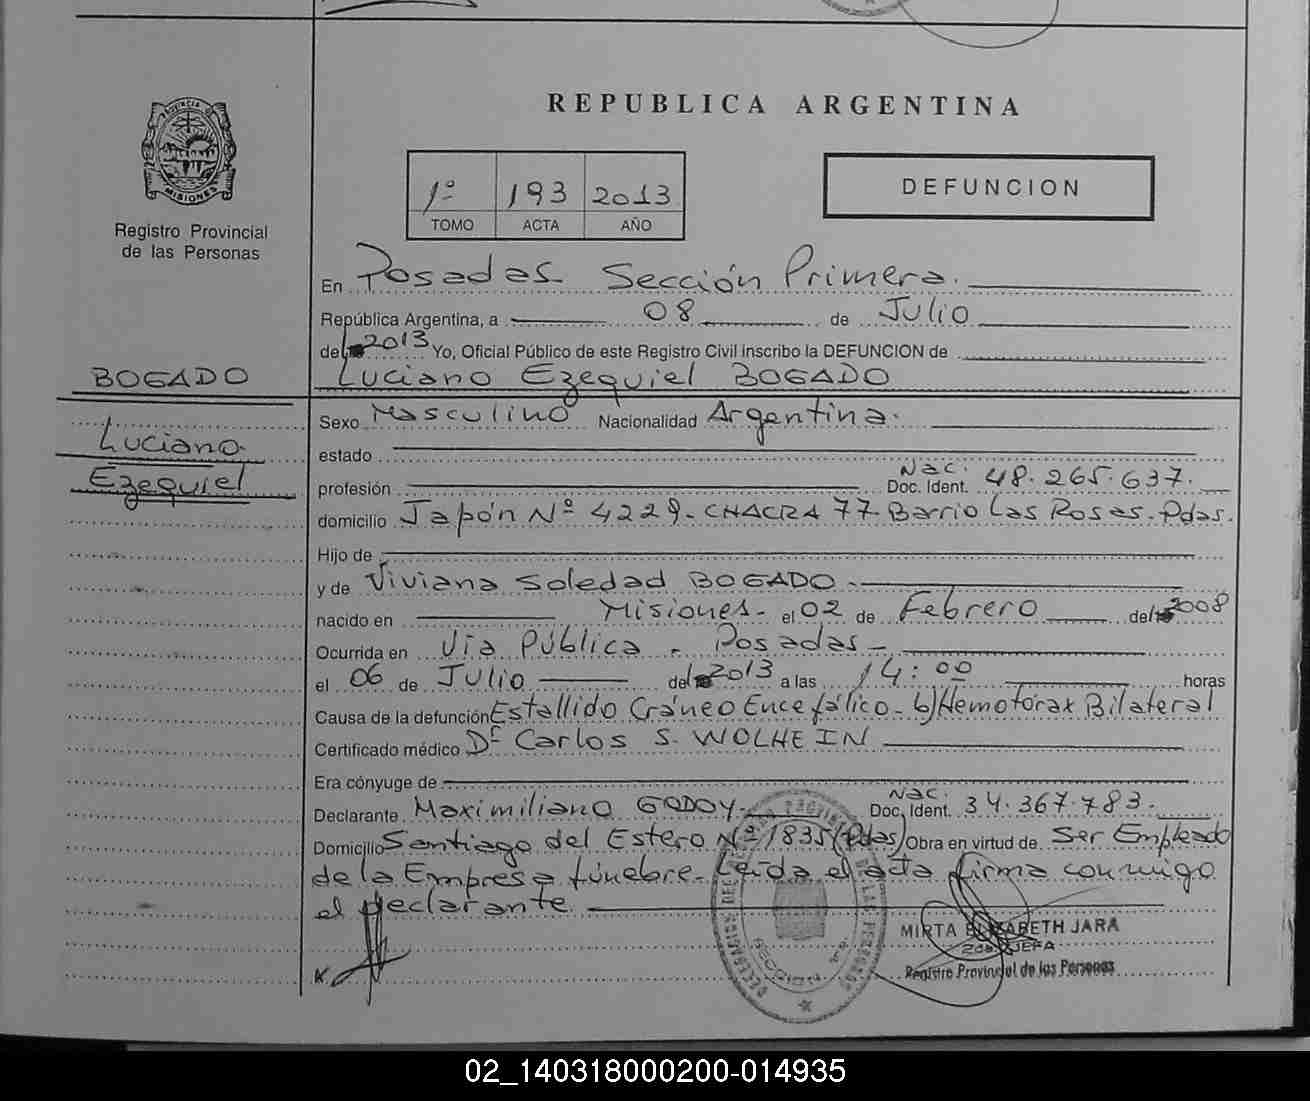 REPUBLICA ARGENTINA
PROVINCIA DE MISIONES
Registro Provincial
de las Personas
1º 193 2013
TOMO ACTA AÑO
DEFUNCION
En Posadas Sección Primera.
República Argentina, a 08 de Julio
del 2013 Yo, Oficial Público de este Registro Civil inscribo la DEFUNCION de
BOGADO
Luciano Ezequiel BOGADO
Luciano
Ezequiel
Sexo Masculino Nacionalidad Argentina.
estado
profesión Nac. Doc. Ident. 48.265.637.
domicilio Japón Nº 4229- CHACRA 77- Barrio Las Rosas. Pdas.
Hijo de
y de Viviana Soledad BOGADO-
nacido en Misiones- el 02 de Febrero del 2008
Ocurrida en Vía Pública - Posadas-
el 06 de Julio del 2013 a las 14:00 horas
Causa de la defunción Estallido Cráneo Encefálico- b) Hemotórax Bilateral
Certificado médico Dr Carlos S. WOLHEIN
Era cónyuge de
Declarante Maximiliano GODOY- Nac. Doc. Ident. 34.367.783.
Domicilio Santiago del Estero Nº 1835 (Pdas) Obra en virtud de Ser Empleado
de la Empresa fúnebre- Leída el acta firma conmigo
el declarante
MIRTA ELIZABETH JARA
JEFA
Registro Provincial de las Personas
02_140318000200-014935